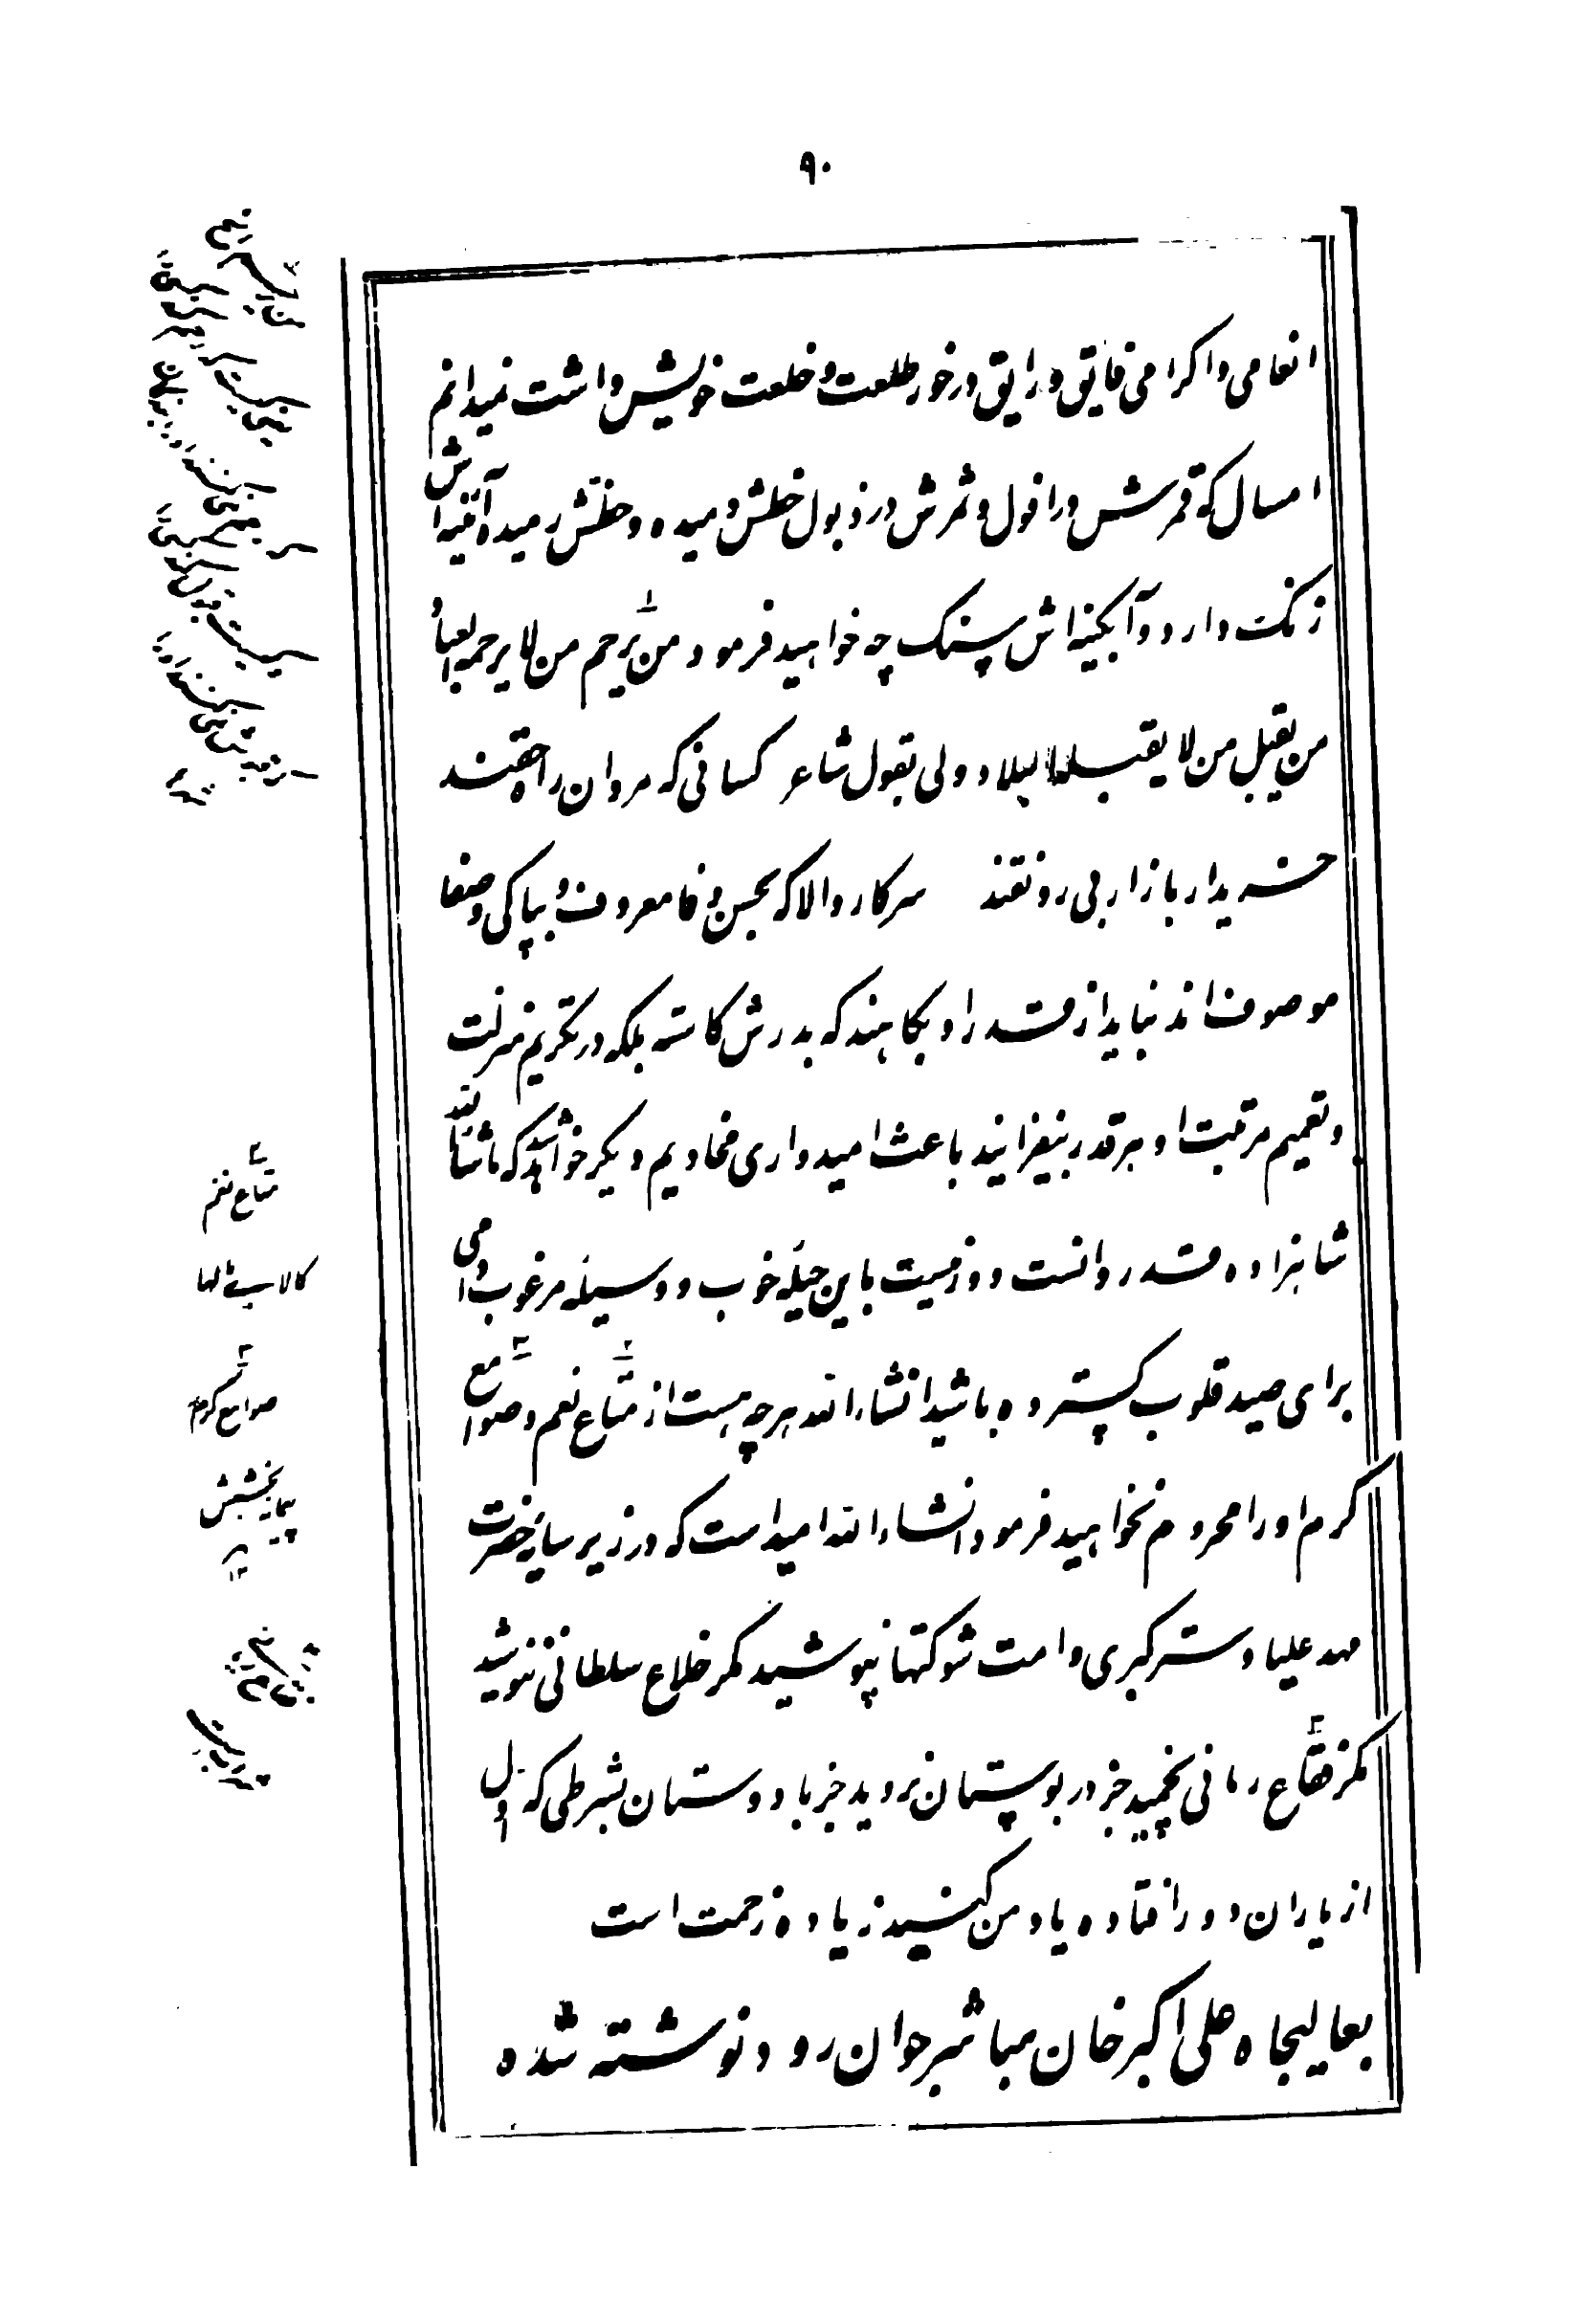 ۹۰
انعامی و اکرامی فایق و رایق درخور طلعت و خلعت خویش داشت نمیدانم
امسال که قمرش در افول و ثمرش در ذبول خطش دمیده و حظش رمیده آئینه اش
زنگ دارد و آبگینه اش سنگ چه خواهید فرمود من یرحم من لا یرحمه العباد
من یقبل من لا یقبله البلاد ولی بقول شاعر کسانی که مردان راه حقند
خریدار بازار بی رونقند سرکار والا که بحسن وفا معروف و بپاکی و صفا
موصوف اند نباید از قدر او بکاهند که بدرش کاسته بلکه در تکریم منزلت
و تعمیم مرتبت او هر قدر بیفزایند باعث امیدواری مخادیم دیگر خواهد شد که ماشاءالله
شاهزاده قدر دانست و وزمیت باین حیله خوب و وسیله مرغوب دامی
برای صید قلوب گسترده باشید انشاءالله هر چه هست از متاع نعم و صواع
کرم او را محروم نخواهید فرمود انشاءالله امید است که در زیر سایه حضرت
مهد علیا و ستر کبری دامت شوکتها نپوشید مگر خلاع سلطانی ننوشید
مگر فقاع رمانی نچمید جز در بوستان نروید جز با دوستان بشرطی که اول
از یاران دور افتاده یاد من کنید زیاده زحمت است
بعالیجاه علی اکبر خان مباشر جوان رود نوشته شده
متاع نعم
کالای
صواع کرم